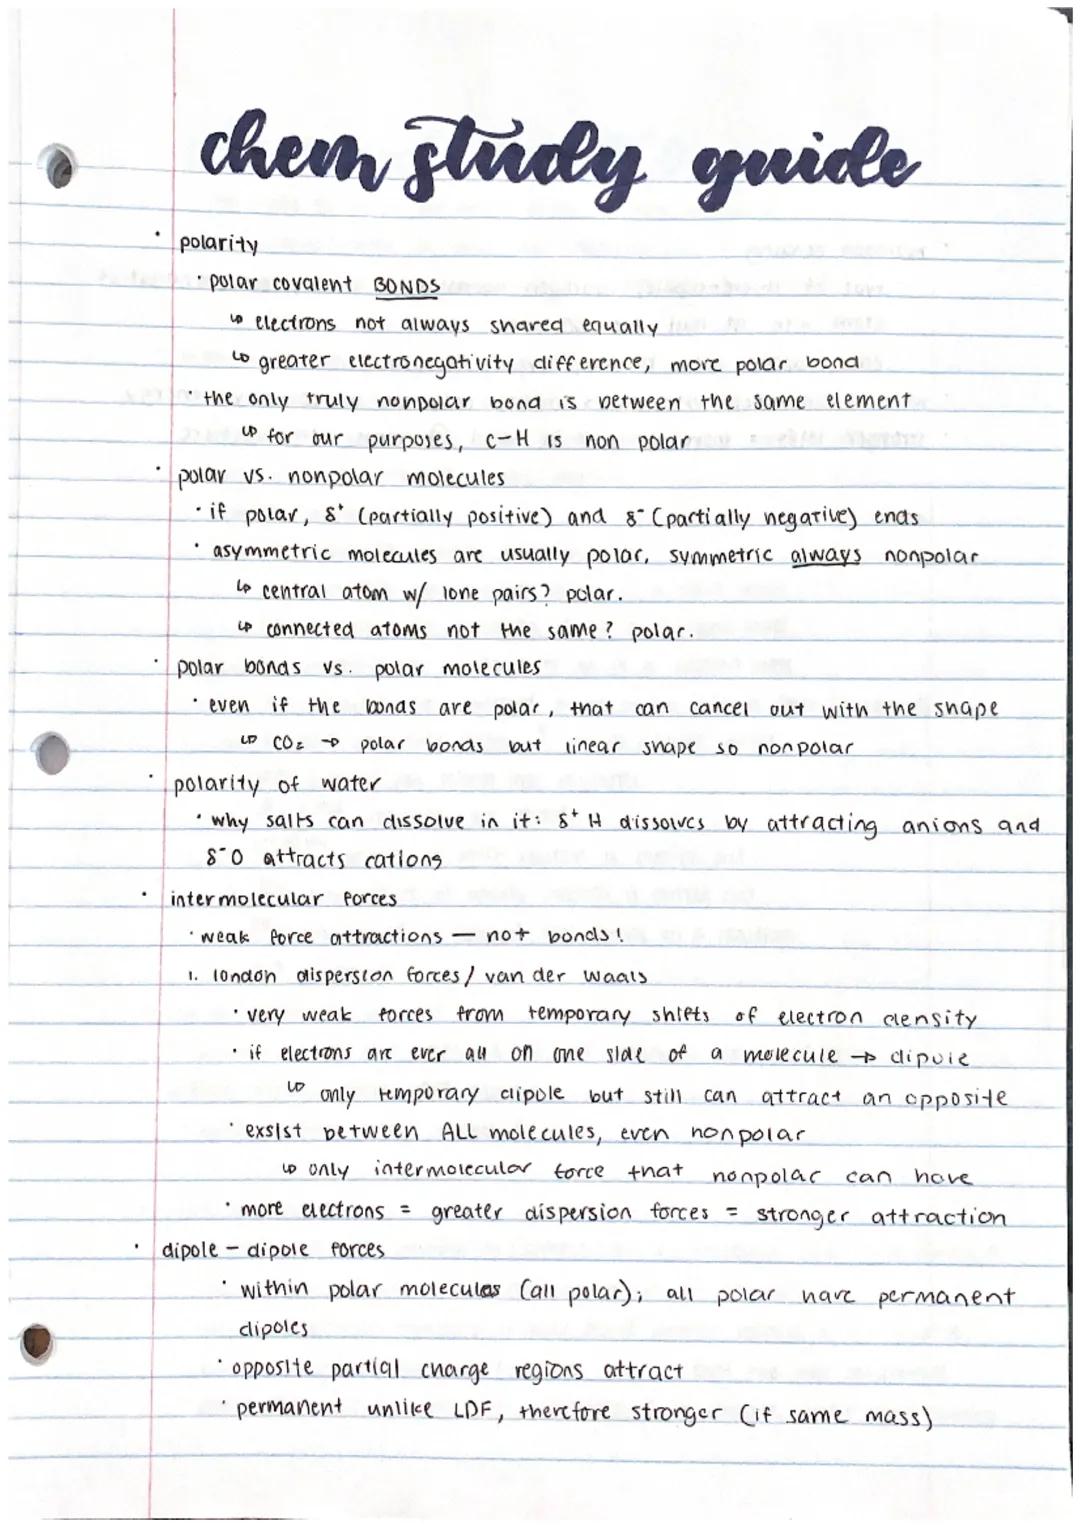 chem study guide
· polarity
· polar covalent BONDS
↳ electrons not always shared equally
↳ greater electronegativity difference, more polar bond
· the only truly nonpolar bond is between the same element
↳ for our purposes, C-H is non polar
· polar vs. nonpolar molecules
· if polar, δ⁺ (partially positive) and δ⁻ (partially negative) ends
· asymmetric molecules are usually polar, symmetric always nonpolar
↳ central atom w/ lone pairs? polar.
↳ connected atoms not the same? polar.
· polar bonds vs. polar molecules
· even if the bonds are polar, that can cancel out with the shape
↳ CO₂ → polar bonds but linear shape so nonpolar
· polarity of water
· why salts can dissolve in it: δ⁺ H dissolves by attracting anions and
δ⁻O attracts cations
· intermolecular forces
· weak force attractions — not bonds!
1. london dispersion forces / van der waals
· very weak forces from temporary shifts of electron density
· if electrons are ever all on one side of a molecule → dipole
↳ only temporary dipole but still can attract an opposite
· exsist between ALL molecules, even nonpolar
↳ only intermolecular force that nonpolar can have
· more electrons = greater dispersion forces = stronger attraction
· dipole - dipole forces
· within polar molecules (all polar); all polar have permanent
dipoles
· opposite partial charge regions attract
· permanent unlike LDF, therefore stronger (if same mass)